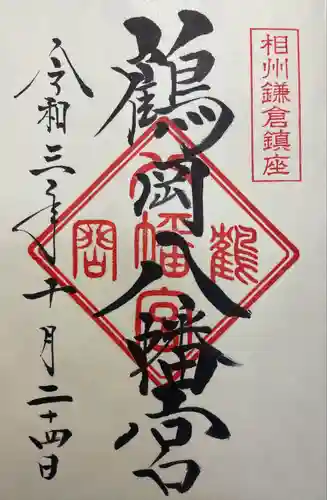 相州鎌倉鎮座
鶴岡八幡宮
鶴岡
八幡宮
令和三年十月二十四日